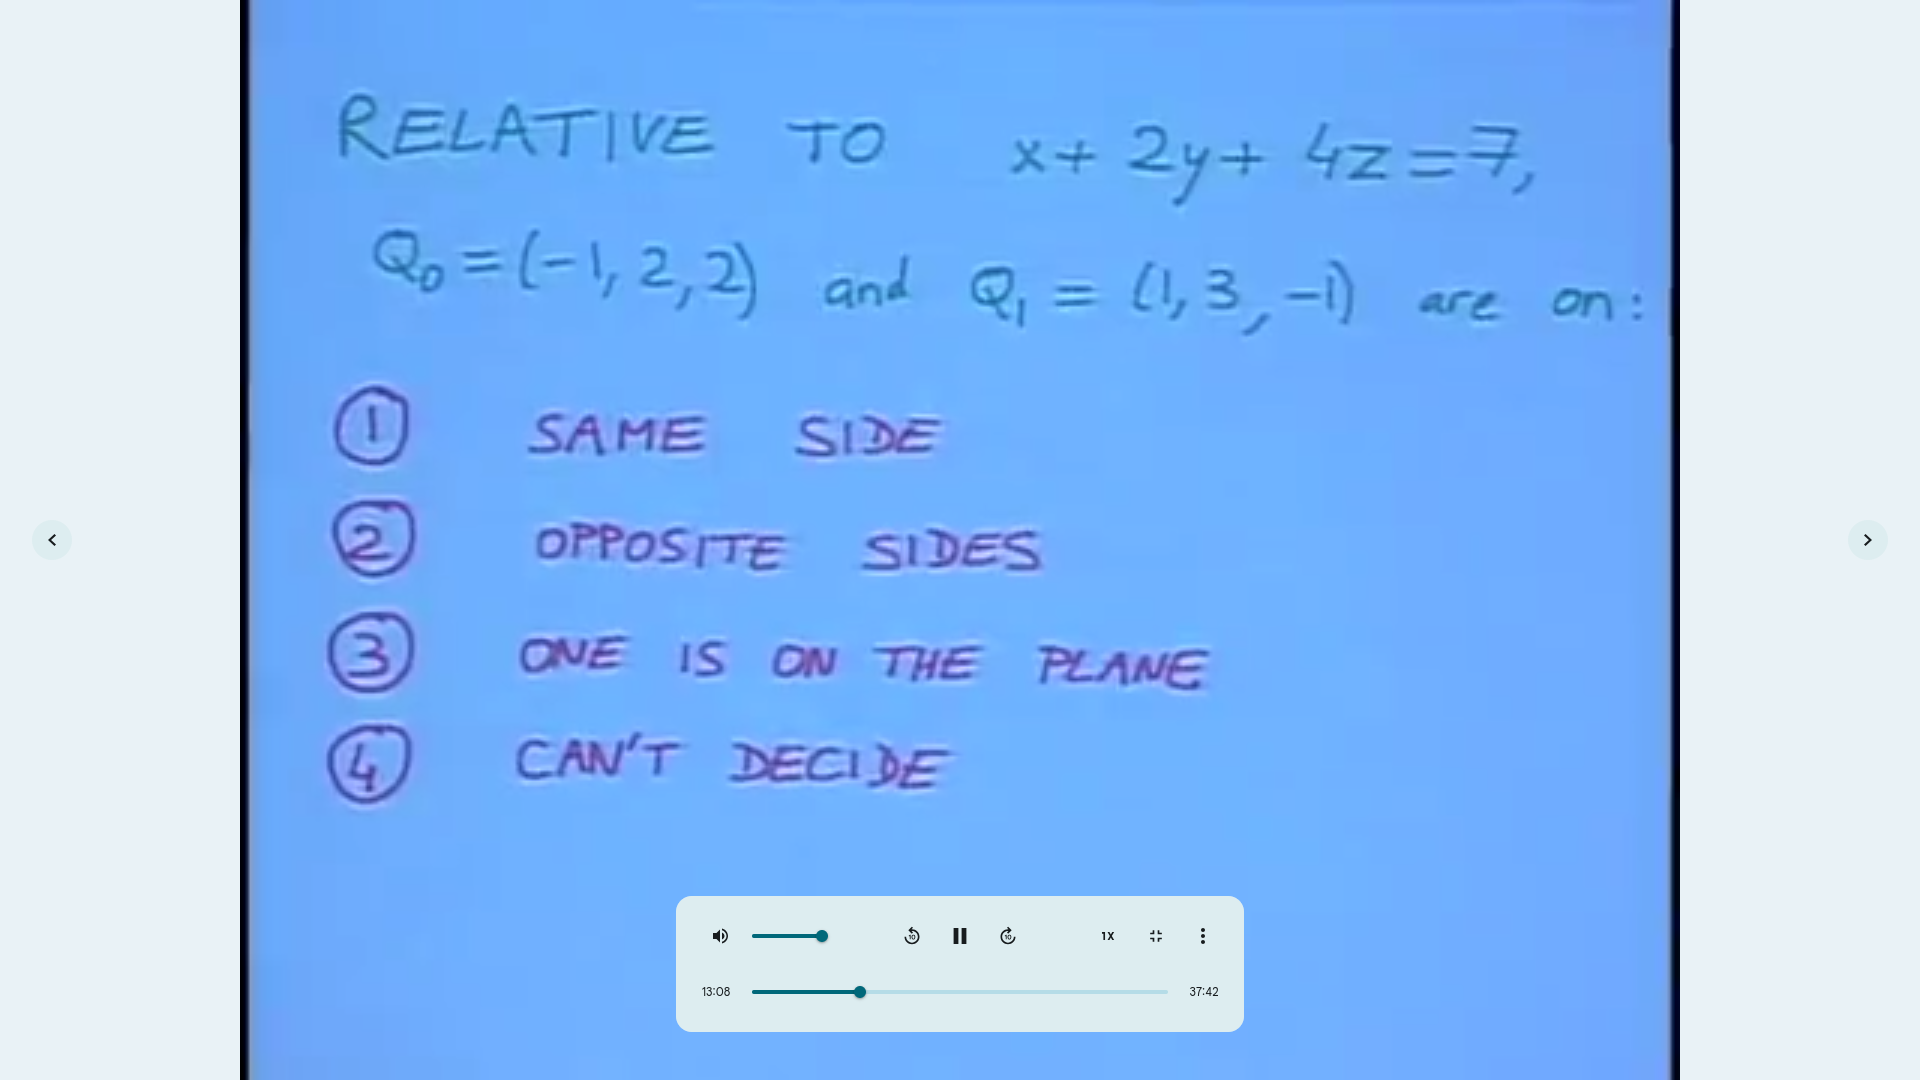 RELATIVE TO x + 2y + 4z = 7,
Q₀ = (-1, 2, 2) and Q₁ = (1, 3, -1) are on:
① SAME SIDE
② OPPOSITE SIDES
③ ONE IS ON THE PLANE
④ CAN'T DECIDE
10 10 1X
13:08 37:42